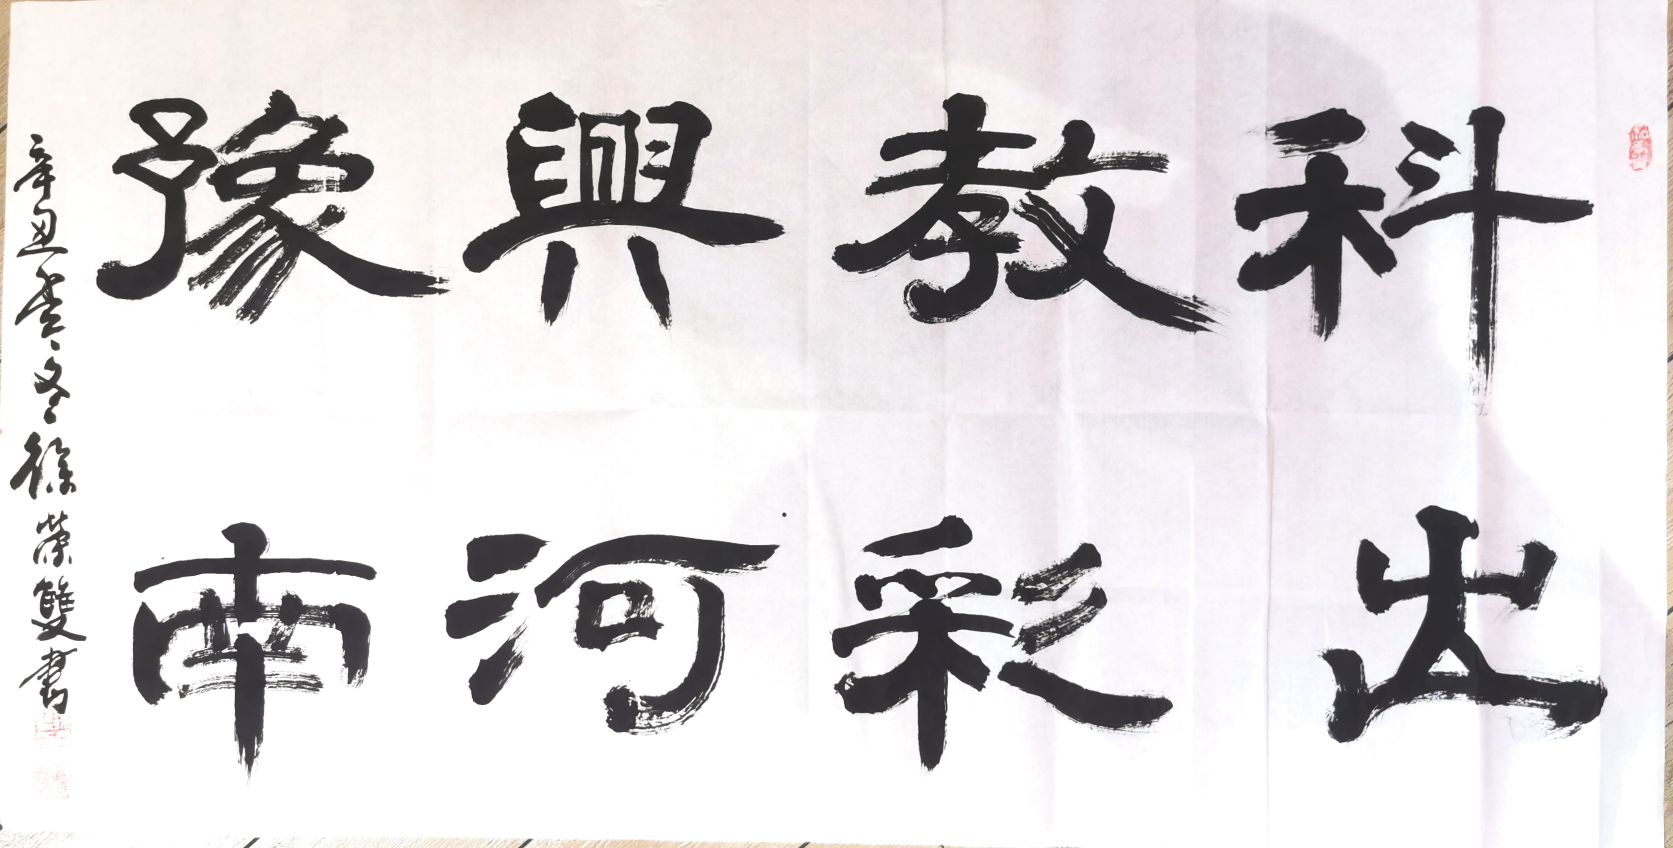 科教興豫
出彩河南
辛丑冬徐榮雙書